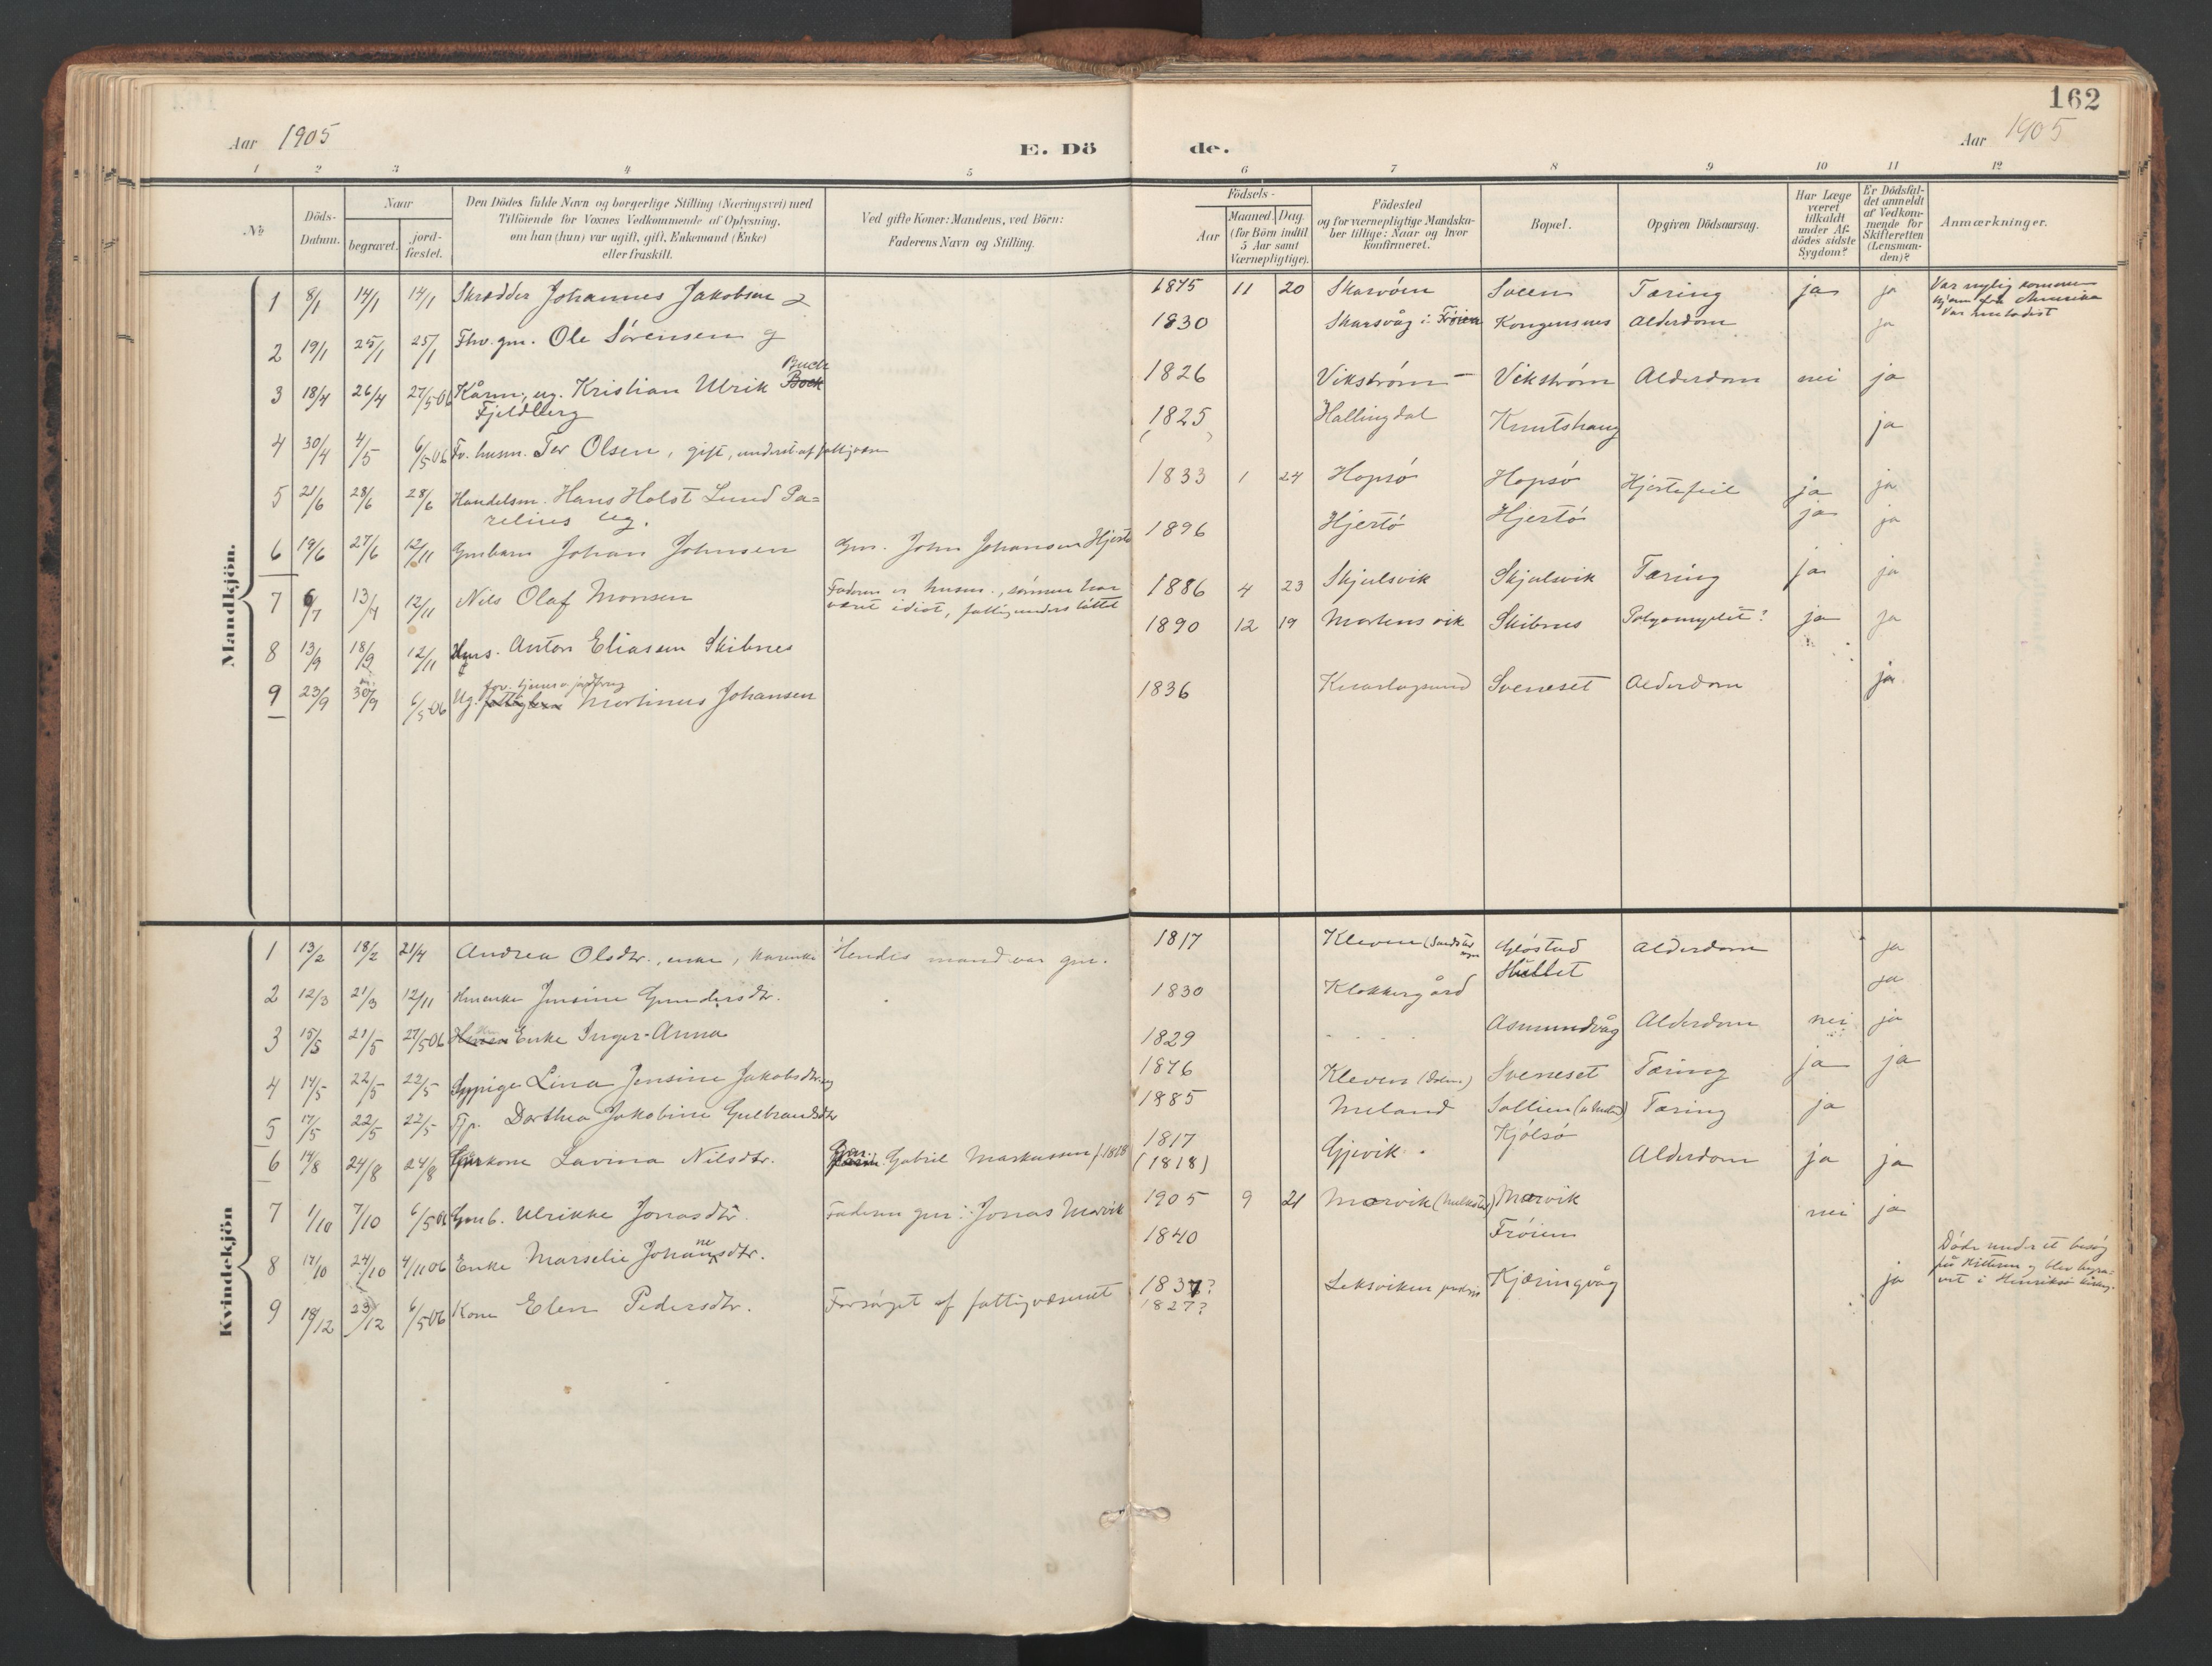 162
Aar 1905
E. Dö
de.
Aar 1905
1 2 3 4 5 6 7 8 9 10 11 12
No
Döds-
Datum.
Naar
begravet.
jord-
fæstet.
Den Dödes fulde Navn og borgerlige Stilling (Næringsvei) med
Tilföiende for Voxnes Vedkommende af Oplysning,
om han (hun) var ugift, gift, Enkemand (Enke)
eller fraskilt.
Ved gifte Koner: Mandens, ved Börn:
Faderens Navn og Stilling.
Födsels-
Aar
Maaned.
Dag.
(for Börn indtil
5 Aar samt
Værnepligtige).
Födested
og for værnepligtige Mandska-
ber tillige: Naar og hvor
konfirmeret.
Bopæl.
Opgiven Dödsaarsag.
Har Læge
været
tilkaldt
under Af-
dödes sidste
Sygdom?
Er Dödsfal-
det anmeldt
af Vedkom-
mende for
Skifteretten
(Lensman-
den)?
Anmærkninger.
Mandkjön.
1 8/1 14/1 14/1 Skrædder Johannes Jakobsen 1875 11 20 Skarvöen Sveen Tæring ja ja Var nylig kommen
hjem fra Amerika
Var metodist
2 19/1 25/1 25/1 Fhv. gm. Ole Sörensen g 1830 Skarsvåg i Fröien Kongensnes Alderdom ja
3 18/4 26/4 27/5 06 Kårm, ug. Kristian Ulrik Bock Buck
Fjeldberg 1826 Vikström Vikström Alderdom nei ja
4 30/4 4/5 6/5 06 Fv. husm. Per Olsen, gift, underst. af fattigvæs 1825 Hallingdal Knutshaug ja
5 21/6 28/6 28/6 Handelsm. Hans Holst Lund Pa=
relius ug. 1833 1 24 Hopsö Hopsö Hjertefeil ja ja
6 19/6 27/6 12/11 Gmbarn Johan Johnsen Gm. John Johansen Hjertö 1896 Hjertö Hjertö ja ja
7 6/7 13/7 12/11 Nils Olaf Monsen Faderen er husm., sønnen har
været idiot, fattigunderstöttet 1886 4 23 Skjulsvik Skjulsvik Tæring ja ja
8 13/9 18/9 12/11 Gms. Anton Eliasen Skibnes 1890 12 19 Mortensvik Skibnes Polyomyelit? ja ja
9 23/9 30/9 6/5 06 Ug. Martinus Johansen 1836 Kvarlagsund Sveneset Alderdom ja
Kvindekjön
1 13/2 18/2 21/4 Andrea Olsdtr., enke, Hendes mand var gm. 1817 Kleven Glöstad Alderdom ja
2 12/3 21/3 12/11 Hmenke Jensine Gundersdtr. 1830 Klokkergård Hallet ja
3 15/5 21/5 27/5 06 Enke Inger-Anna 1829 Asmundvåg Alderdom nei ja
4 14/5 22/5 22/5 Sypige Lina Jensine Jakobsdtr. ug 1876 Kleven (Dolm) Sveneset Tæring ja ja
5 17/5 22/5 22/5 Tjp. Dorthea Jakobine Gulbrandsdtr 1885 Meland Sollien Tæring ja
6 14/8 24/8 24/8 Gmkone Lavina Nilsdtr. Gm. Gabriel Markussen f 1818 1817
(1818) Gjevik Kjölsö Alderdom ja ja
7 1/10 7/10 6/5 06 Gmb. Ulrikke Jonasdtr. Faderen gm. Jonas Mærvik 1905 9 21 Mærvik Mærvik nei ja
8 17/10 24/10 4/11 06 Enke Marselie Johannesdtr. 1840 Fröien Döde under et besög
på Hitteren og blev begra-
vet i
9 18/12 23/12 6/5 06 Kone Elen Pedersdtr. Forsörget af fattigvæsenet 1837?
1827? Leksviken Kjæringvåg ja